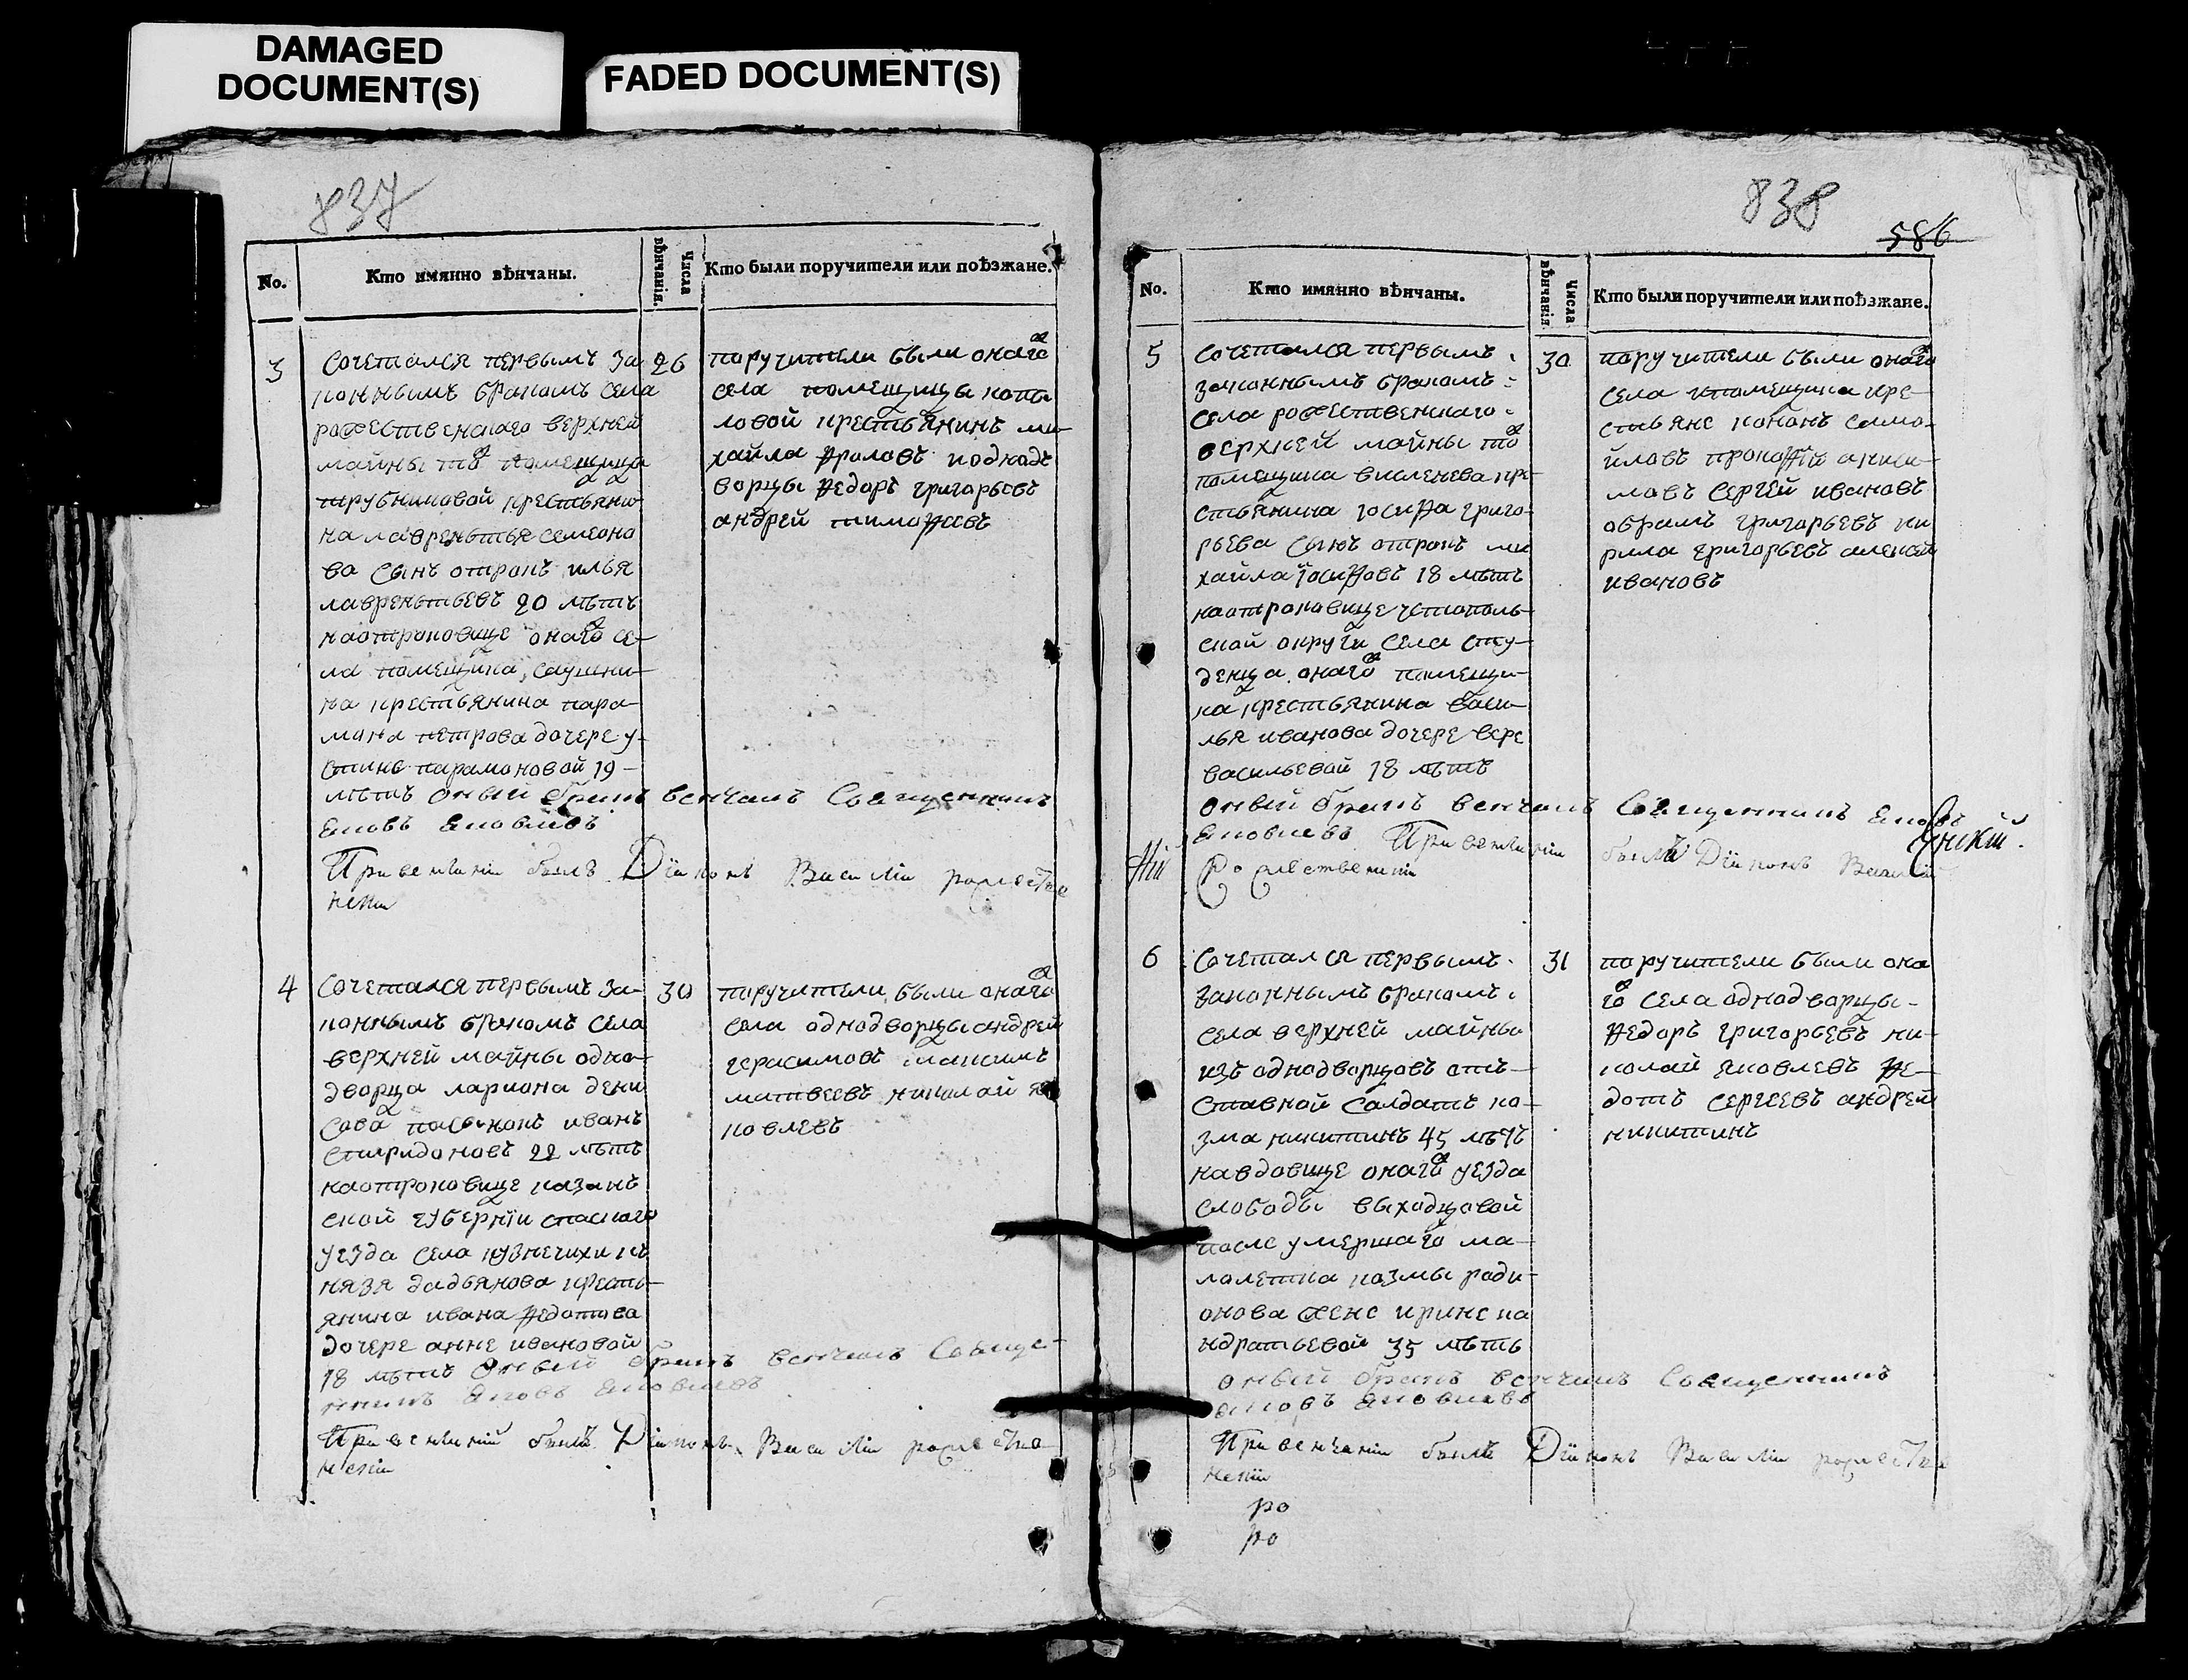 DAMAGED
DOCUMENT(S)
FADED DOCUMENT(S)
837
No.
Кто имянно вѣнчаны.
Числа
вѣнчанія.
Кто были поручители или поѣзжане.
3
сочетался первымъ за
коннымъ бракомъ села
рожественскаго верхней
майны то помещица
трубниковой крестьяни
на лаврентья семено
ва сынъ отрокъ илья
лаврентьевъ 20 лѣтъ
наотроковице онаго се
ла помещика
на крестьянина пара
мона петрова дочере у
стине парамоновой 19
лѣтъ оный бракъ венчалъ Священникъ
Яковъ Яковлевъ
При венчании былъ Діяконъ Василіи рожестве
нскіи
26
поручители были онаго
села помещицы копы
ловой крестьянинъ ми
хайла фроловъ иоднод
ворцы федоръ григорьевъ
андрей тимофеевъ
4
сочетался первымъ за
коннымъ бракомъ села
верхней майны одно
дворца лариона дени
сова пасынокъ иванъ
спиридоновъ 22 лѣтъ
наотроковице казанъ
ской губерніи спаскаго
уезда села кузнечихи къ
нязя дадьянова кресть
янина ивана федотова
дочере анне ивановой
18 лѣтъ Оный бракъ венчалъ Свяще
нникъ Яковъ Яковлевъ
При венчаніи былъ Діяконъ Василіи рожестве
нскіи
30
поручители были онаго
села однодворцы андрей
герасимовъ максимъ
матвеевъ николай я
ковлевъ
838
586
No.
Кто имянно вѣнчаны.
Числа
вѣнчанія
Кто были поручители или поѣзжане.
5
сочетался первымъ
законнымъ бракомъ
села рожественскаго
верхней майны то
помещика висленева кре
стьянина іосифа григо
рьева сынъ отрокъ ми
хайла іосифовъ 18 лѣтъ
наотроковице чстополь
ской округи села сту
денца онаго помещи
ка крестьянина васи
лья иванова дочере вере
васильевой 18 лѣтъ
оный бракъ венчалъ Священникъ Яковъ
Яковлевъ При венчаніи былъ Діяконъ Василіи
Рожественскіи
30
поручители были онаго
села помещика кре
стьяне кононъ само
йловъ прокофій аниси
мовъ сергей ивановъ
абрамъ григорьевъ ки
рила григорьевъ алексей
ивановъ
6
сочетался первымъ
законнымъ бракомъ
села верхней майны
изъ однодворцовъ отъ
ставной солдатъ ко
зма никитинъ 45 лѣтъ
навдовице онаго уезда
слободы выходцовой
после умершаго ма
лолетка козмы роди
онова жене ирине ко
ндратьевой 35 лѣтъ
оный бракъ венчалъ Священникъ
Яковъ Яковлевъ
При венчаніи былъ Діяконъ Василіи рожестве
нскіи
ро
ро
31
поручители были она
го села однодворцы
федоръ григорьевъ ни
колай яковлевъ фе
дотъ сергеевъ андрей
никитинъ